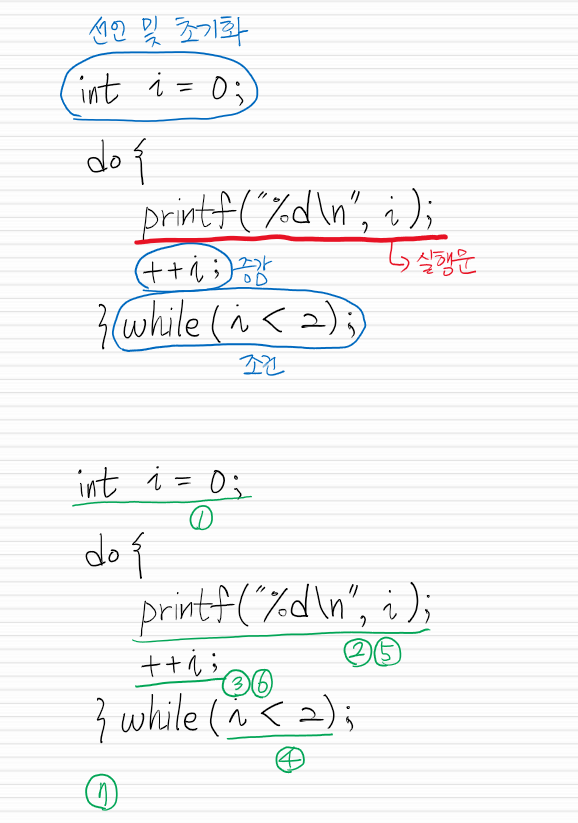 선언 및 초기화
int i = 0;
do {
printf("%d\n", i);
++i; 증감 ↳ 실행문
} while ( i < 2);
조건
int i = 0;
①
do {
printf("%d\n", i);
② ⑤
++i;
③ ⑥
} while ( i < 2);
④
⑦